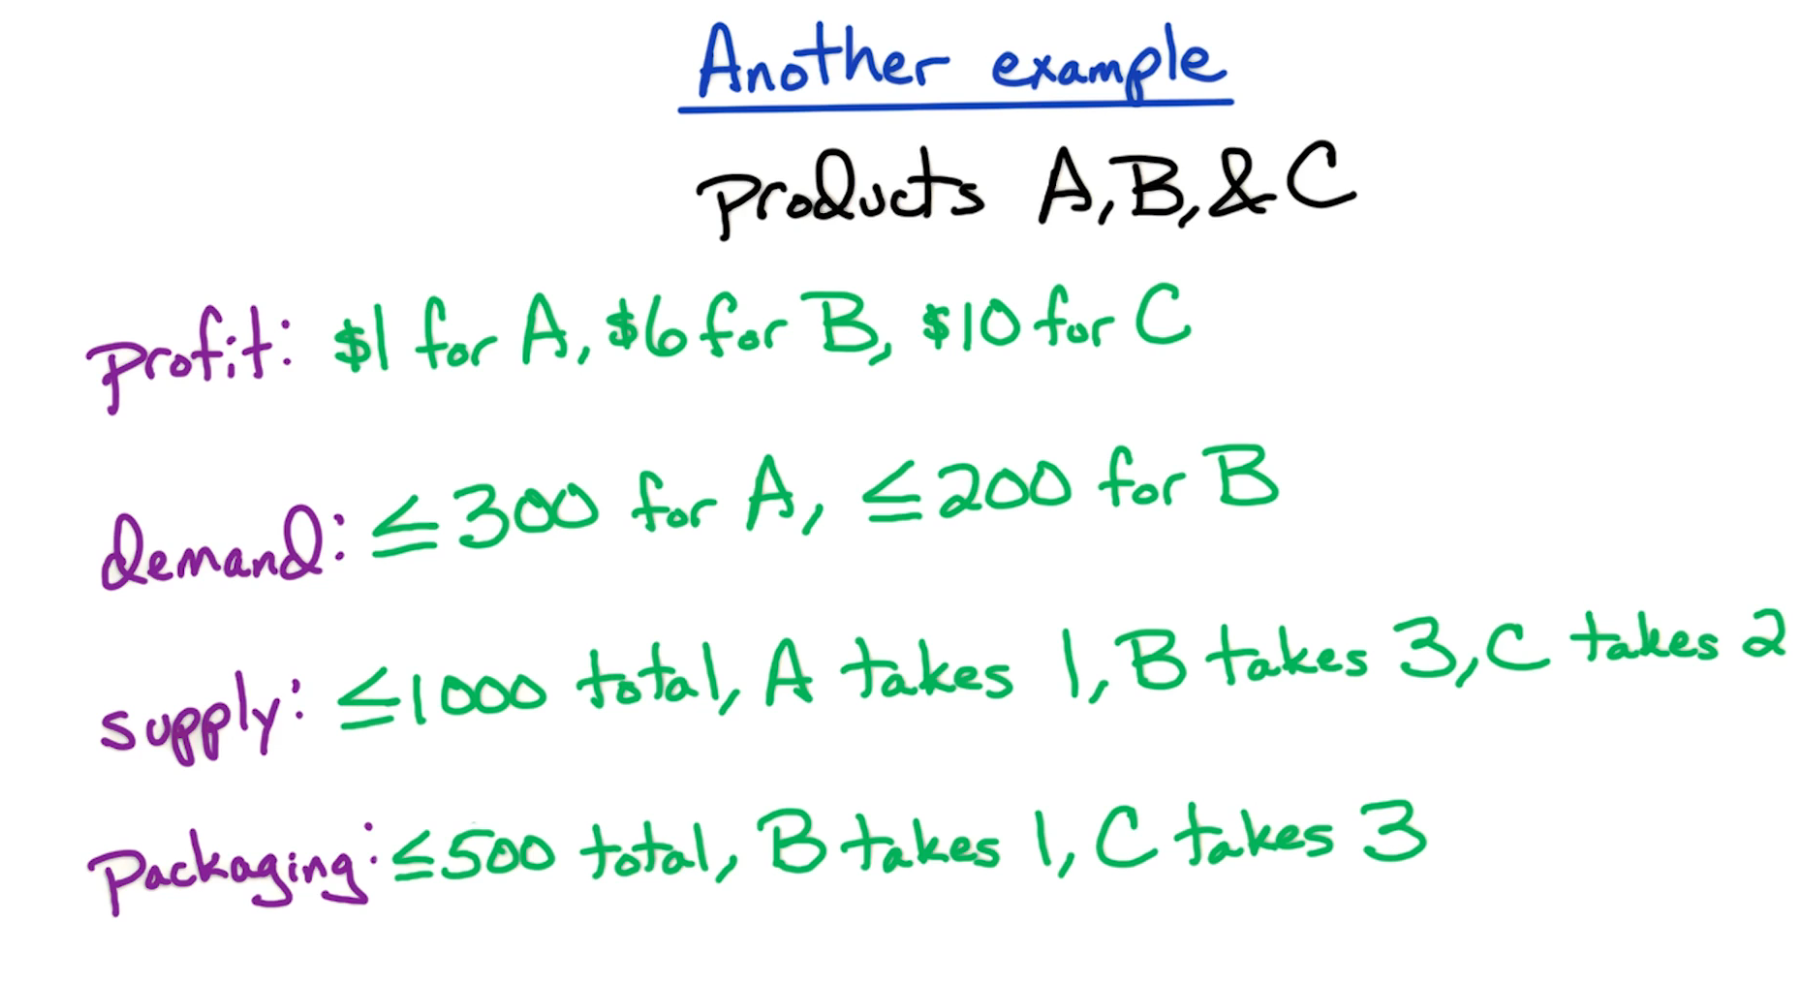 Another example
Products A, B, & C
Profit: $1 for A, $6 for B, $10 for C
demand: ≤300 for A, ≤200 for B
supply: ≤1000 total, A takes 1, B takes 3, C takes 2
Packaging: ≤500 total, B takes 1, C takes 3